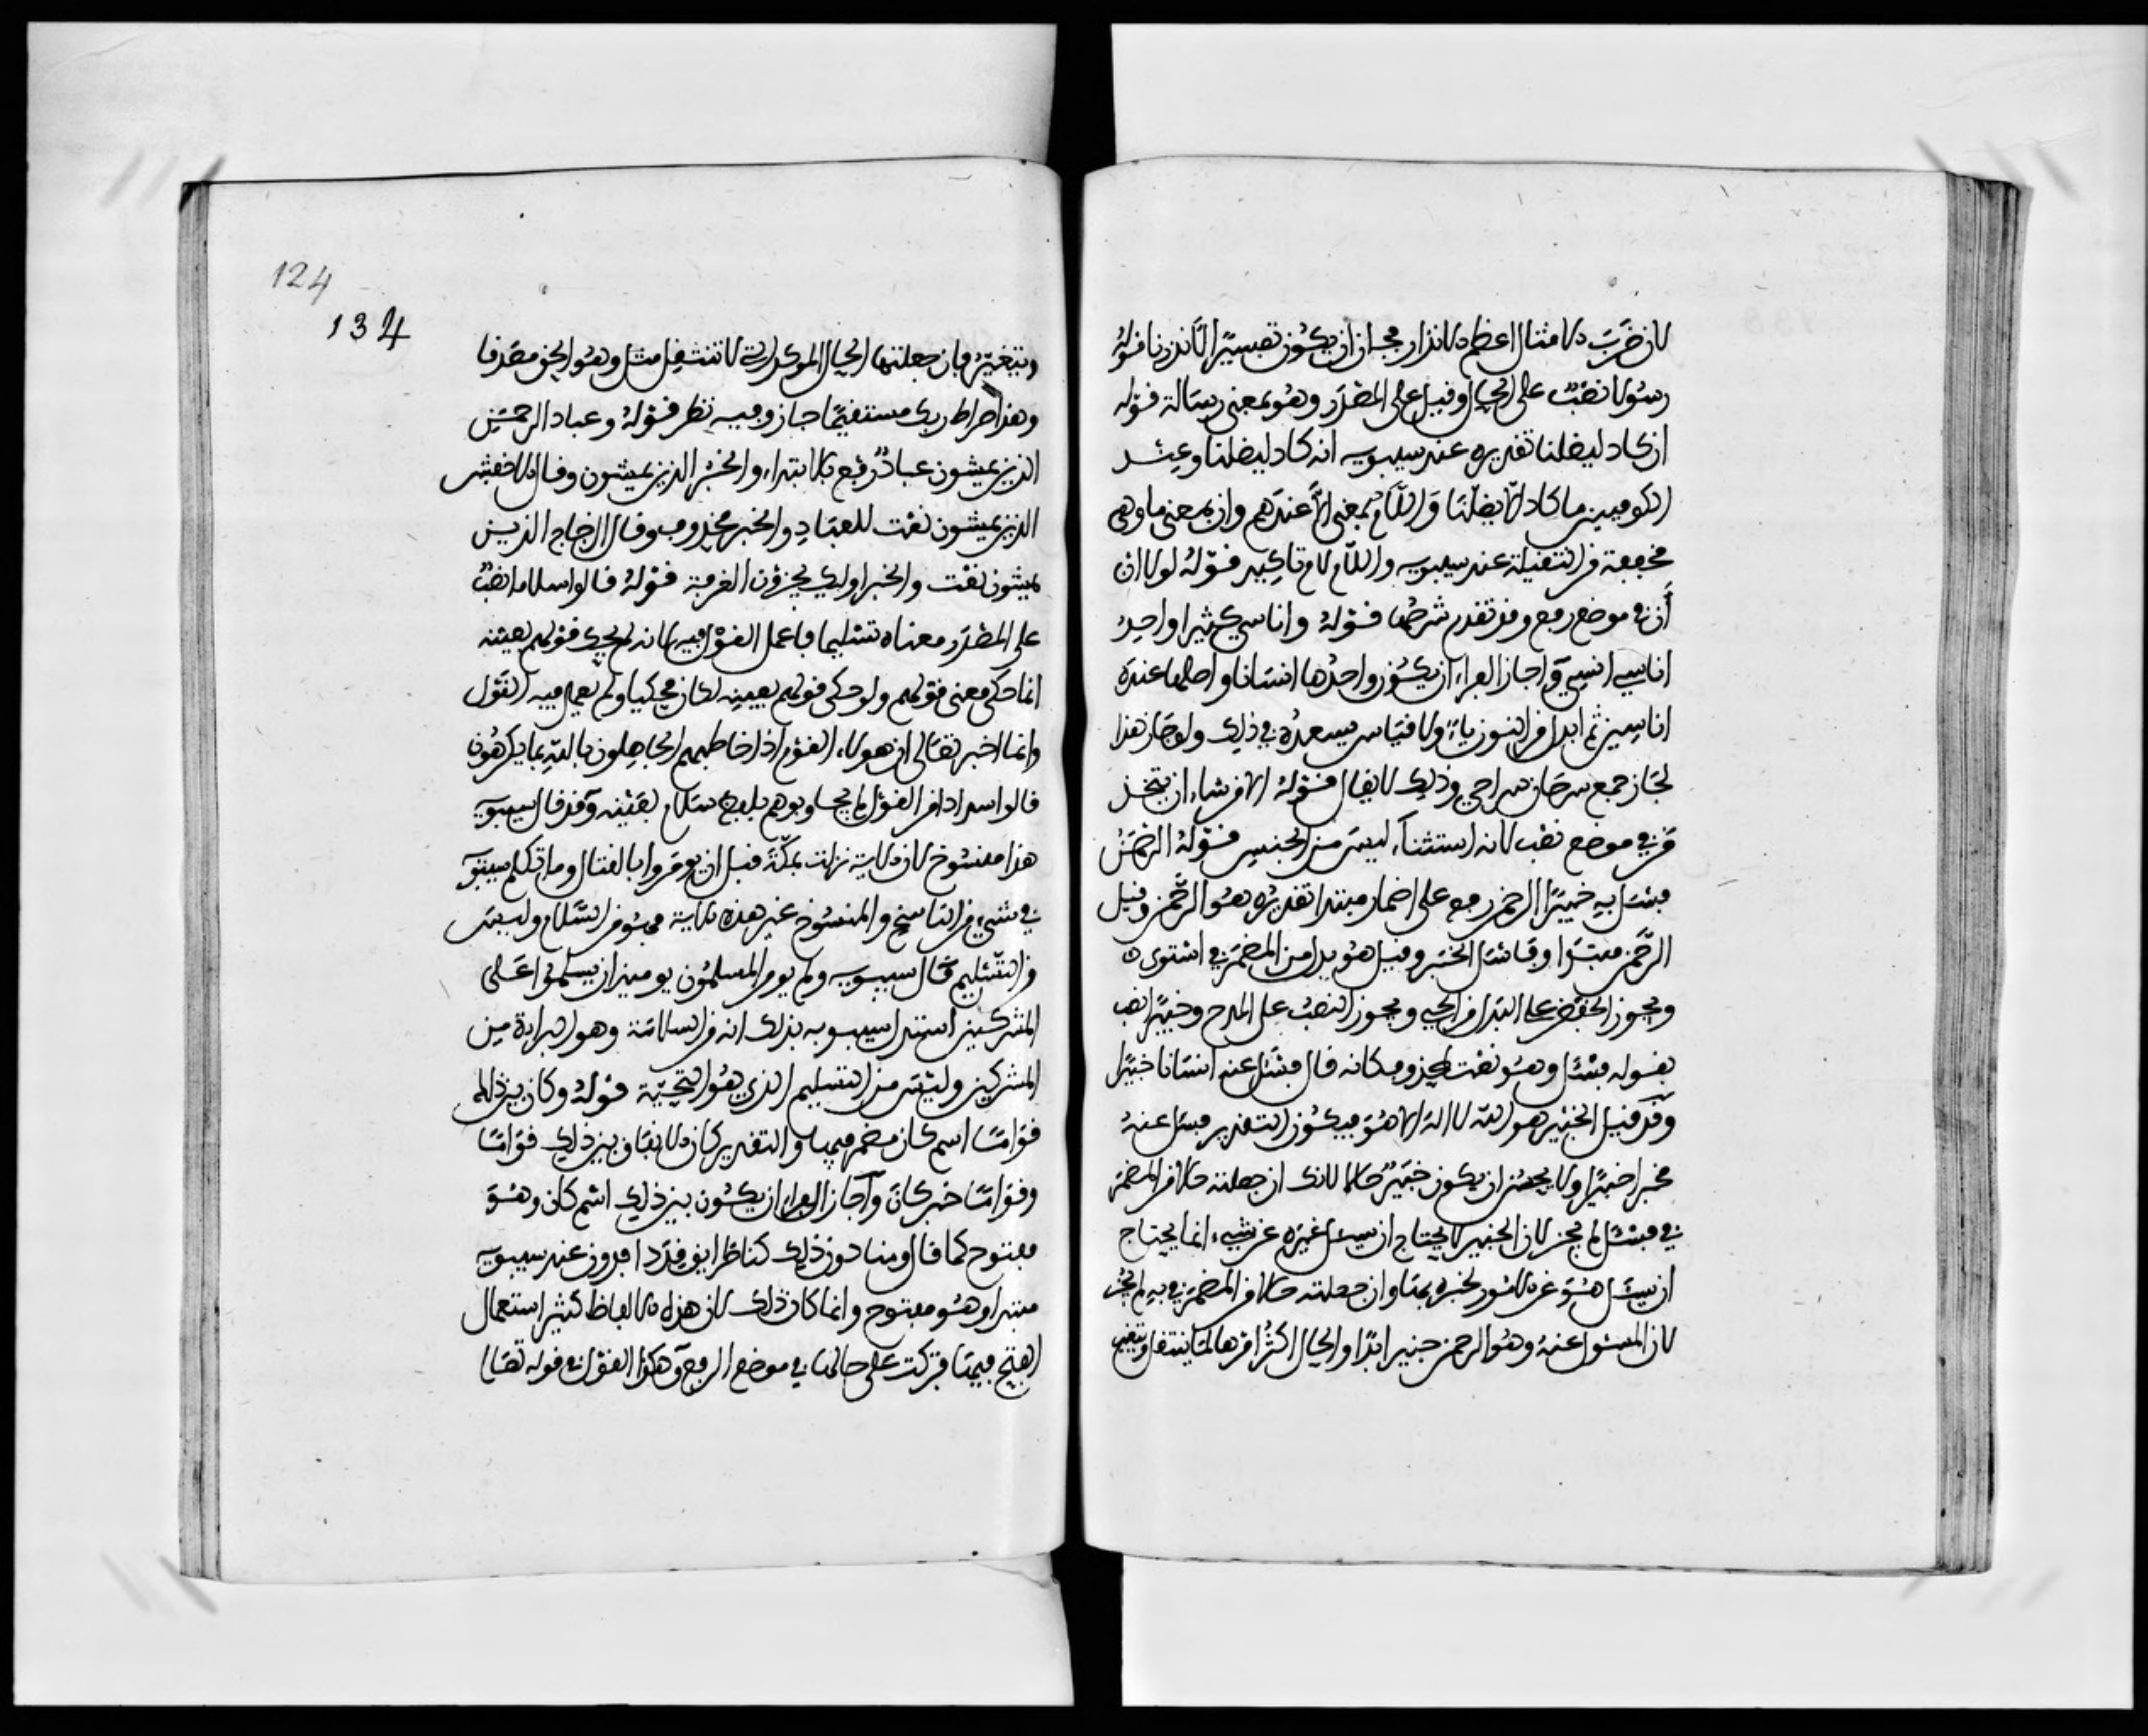 لان ضرب الامثال اعظم الانذار فجاز ان يكون تفسيرا لانذرنا قوله
رسولا نصب على الحال وقيل على المصدر وهو بمعنى رسالة قوله
ان كاد ليضلنا تقديره عند سيبويه انه كاد ليضلنا وعند
الكوفيين ما كاد الا يضلنا واللام بمعنى الا عندهم وان بمعنى ما وهي
مخففة من الثقيلة عند سيبويه واللام لام تاكيد قوله لولا ان
أن في موضع رفع وقد تقدم شرحها قوله واناسي كثيرا واحد
اناسي انسي واجاز الفراء ان يكون واحدها انسانا واصلها عنده
اناسين ثم ابدل من النون ياء ولا قياس يسعده في ذلك ولو جاز هذا
لجاز جمع سرحان سراحي وذلك لا يقال قوله الا من شاء ان يتخذ
من في موضع نصب لانه استثناء ليس من الجنس قوله الرحمن
فسئل به خبيرا الرحمن رفع على اضمار مبتدا تقديره هو الرحمن وقيل
الرحمن مبتدا وفاسئل الخبر وقيل هو بدل من المضمر في استوى
ويجوز الخفض على البدل من الحي ويجوز النصب على المدح وخبيرا نصب
بقوله فسئل وهو نعت لمحذوف كانه قال فسئل عنه انسانا خبيرا
وقد قيل الخبير هو الله لا اله الا هو فيكون التقدير فسئل عنه
مخبرا خبيرا ولا يحسن ان يكون خبيرا حالا لانك ان جعلته حالا من المضمر
في فسئل لم يجز لان الخبير لا يحتاج ان يسئل غيره عن شيء انما يحتاج
ان يسئل هو عن الامور لخبره بها وان جعلته حالا من المضمر في به لم يجز
لان المسئول عنه وهو الرحمن خبير ابدا والحال اكثر امرها لما ينتقل ويتغير
124
134
ويتغير فان جعلتها الحال الموكدة التي لا تنتقل مثل وهو الحق مصدقا
وهذا صراط ربك مستقيما جاز وفيه نظر قوله وعباد الرحمن
الذين يمشون عباد رفع بالابتداء والخبر الذين يمشون وقال الاخفش
الذين يمشون نعت للعباد والخبر محذوف وقال الزجاج الذين
يمشون نعت والخبر اوليك يجزون الغرفة قوله قالوا سلاما نصب
على المصدر معناه تسليما فاعمل القول فيه لانه لم يحك قولهم بعينه
انما حكى معنى قولهم ولو حكى قولهم بعينه لكان محكيا ولم يعمل فيه القول
وانما اخبر تعالى ان هولاء القوم اذا خاطبهم الجاهلون بالله بما يكرهون
قالوا سدادا من القول لم يجاوبوهم بلفظ سلام بعينه وقد قال سيبويه
هذا منسوخ لان الاية نزلت بمكة قبل ان يومروا بالقتال وما تكلم سيبويه
في شيء من الناسخ والمنسوخ غير هذه الاية فهو من السلام وليس
من التسليم قال سيبويه ولم يومر المسلمون يوميذ ان يسلموا على
المشركين استدل سيبويه بذلك انه من السلامة وهو البراءة من
المشركين وليس من التسليم الذي هو التحية قوله وكان بين ذلك
قواما اسم كان مضمر فيها والتقدير كان الانفاق بين ذلك قواما
وقواما خبر كان واجاز الفراء ان يكون بين ذلك اسم كان وهو
مفتوح كما قال ومنا دون ذلك كنا طرايق قددا فدون عند سيبويه
مبتدا وهو مفتوح وانما كان ذلك لان هذه الالفاظ كثير استعمال
الفتح فيها فتركت على حالها في موضع الرفع وهكذا القول في قوله تعالى